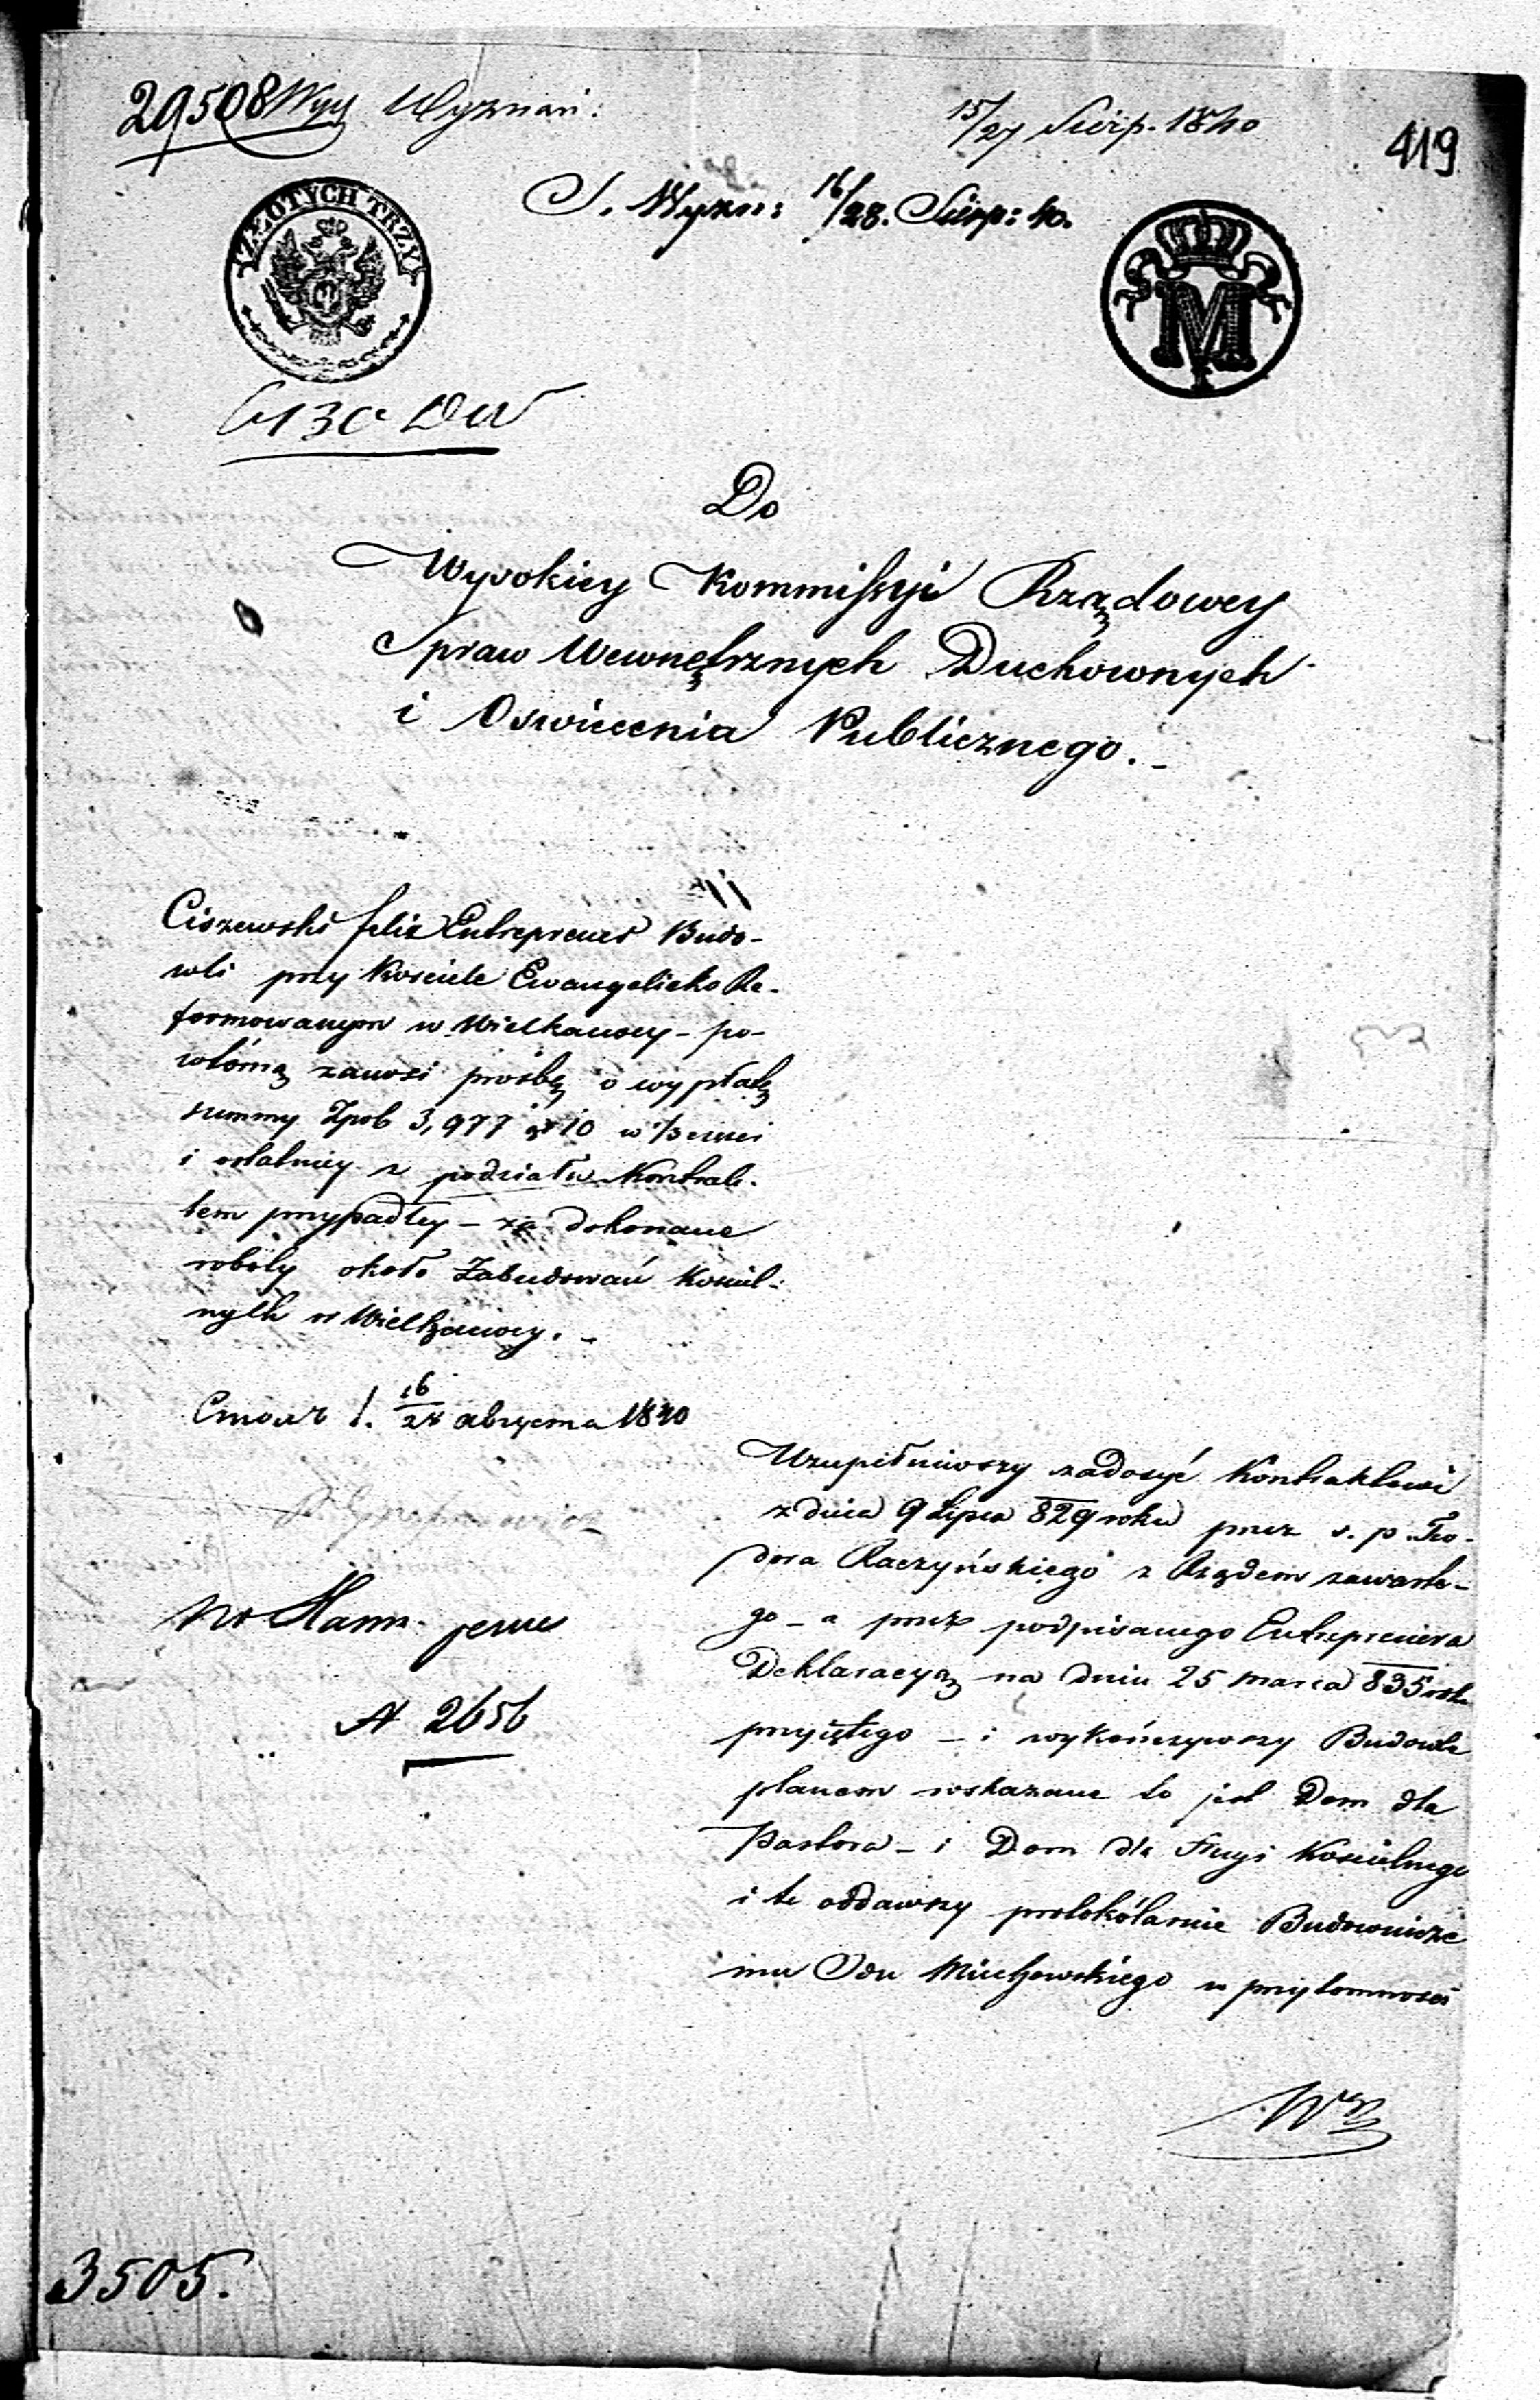 29508 Wyz Wyznań:
15/27 Sierp. 1840
419
S. Wyzn: 16/28. Sierp: 40.
ZŁOTYCH TRZY
M
Do
Wysokiey Kommissyi Rządowey
Spraw Wewnętrznych Duchownych
i Oswiecenia Publicznego.
Ciszewski Felix Entreprener Budo-
wli przy Kosciele Ewangelicko Re-
formowanym w Wielkanocy - po-
wtórną zanosi prośbę o wypłatę
summy Zpol 3,977 gr 10 w 1/3 części
i ostatniey z podziału Kontrak-
tem przypadłey - za dokonane
roboty około Zabudowań Kościel-
nych w Wielkanocy.
1840
Uzupełniwszy zadosyć Kontraktowi
z dnia 9 Lipca 829 roku przez s. p. Teo-
dora Raczyńskiego z Rządem zawarte-
go - a przez podpisanego Entreprenera
Deklaracyą na dniu 25 marca 835 roku
przyiętego - i wykończywszy Budowle
planem wskazane to jest Dom dla
Pastora - i Dom dla Sługi Kościelnego
i te oddawszy protokólarnie Budownicze
mu Odu Miechowskiego w przytomności
3505.